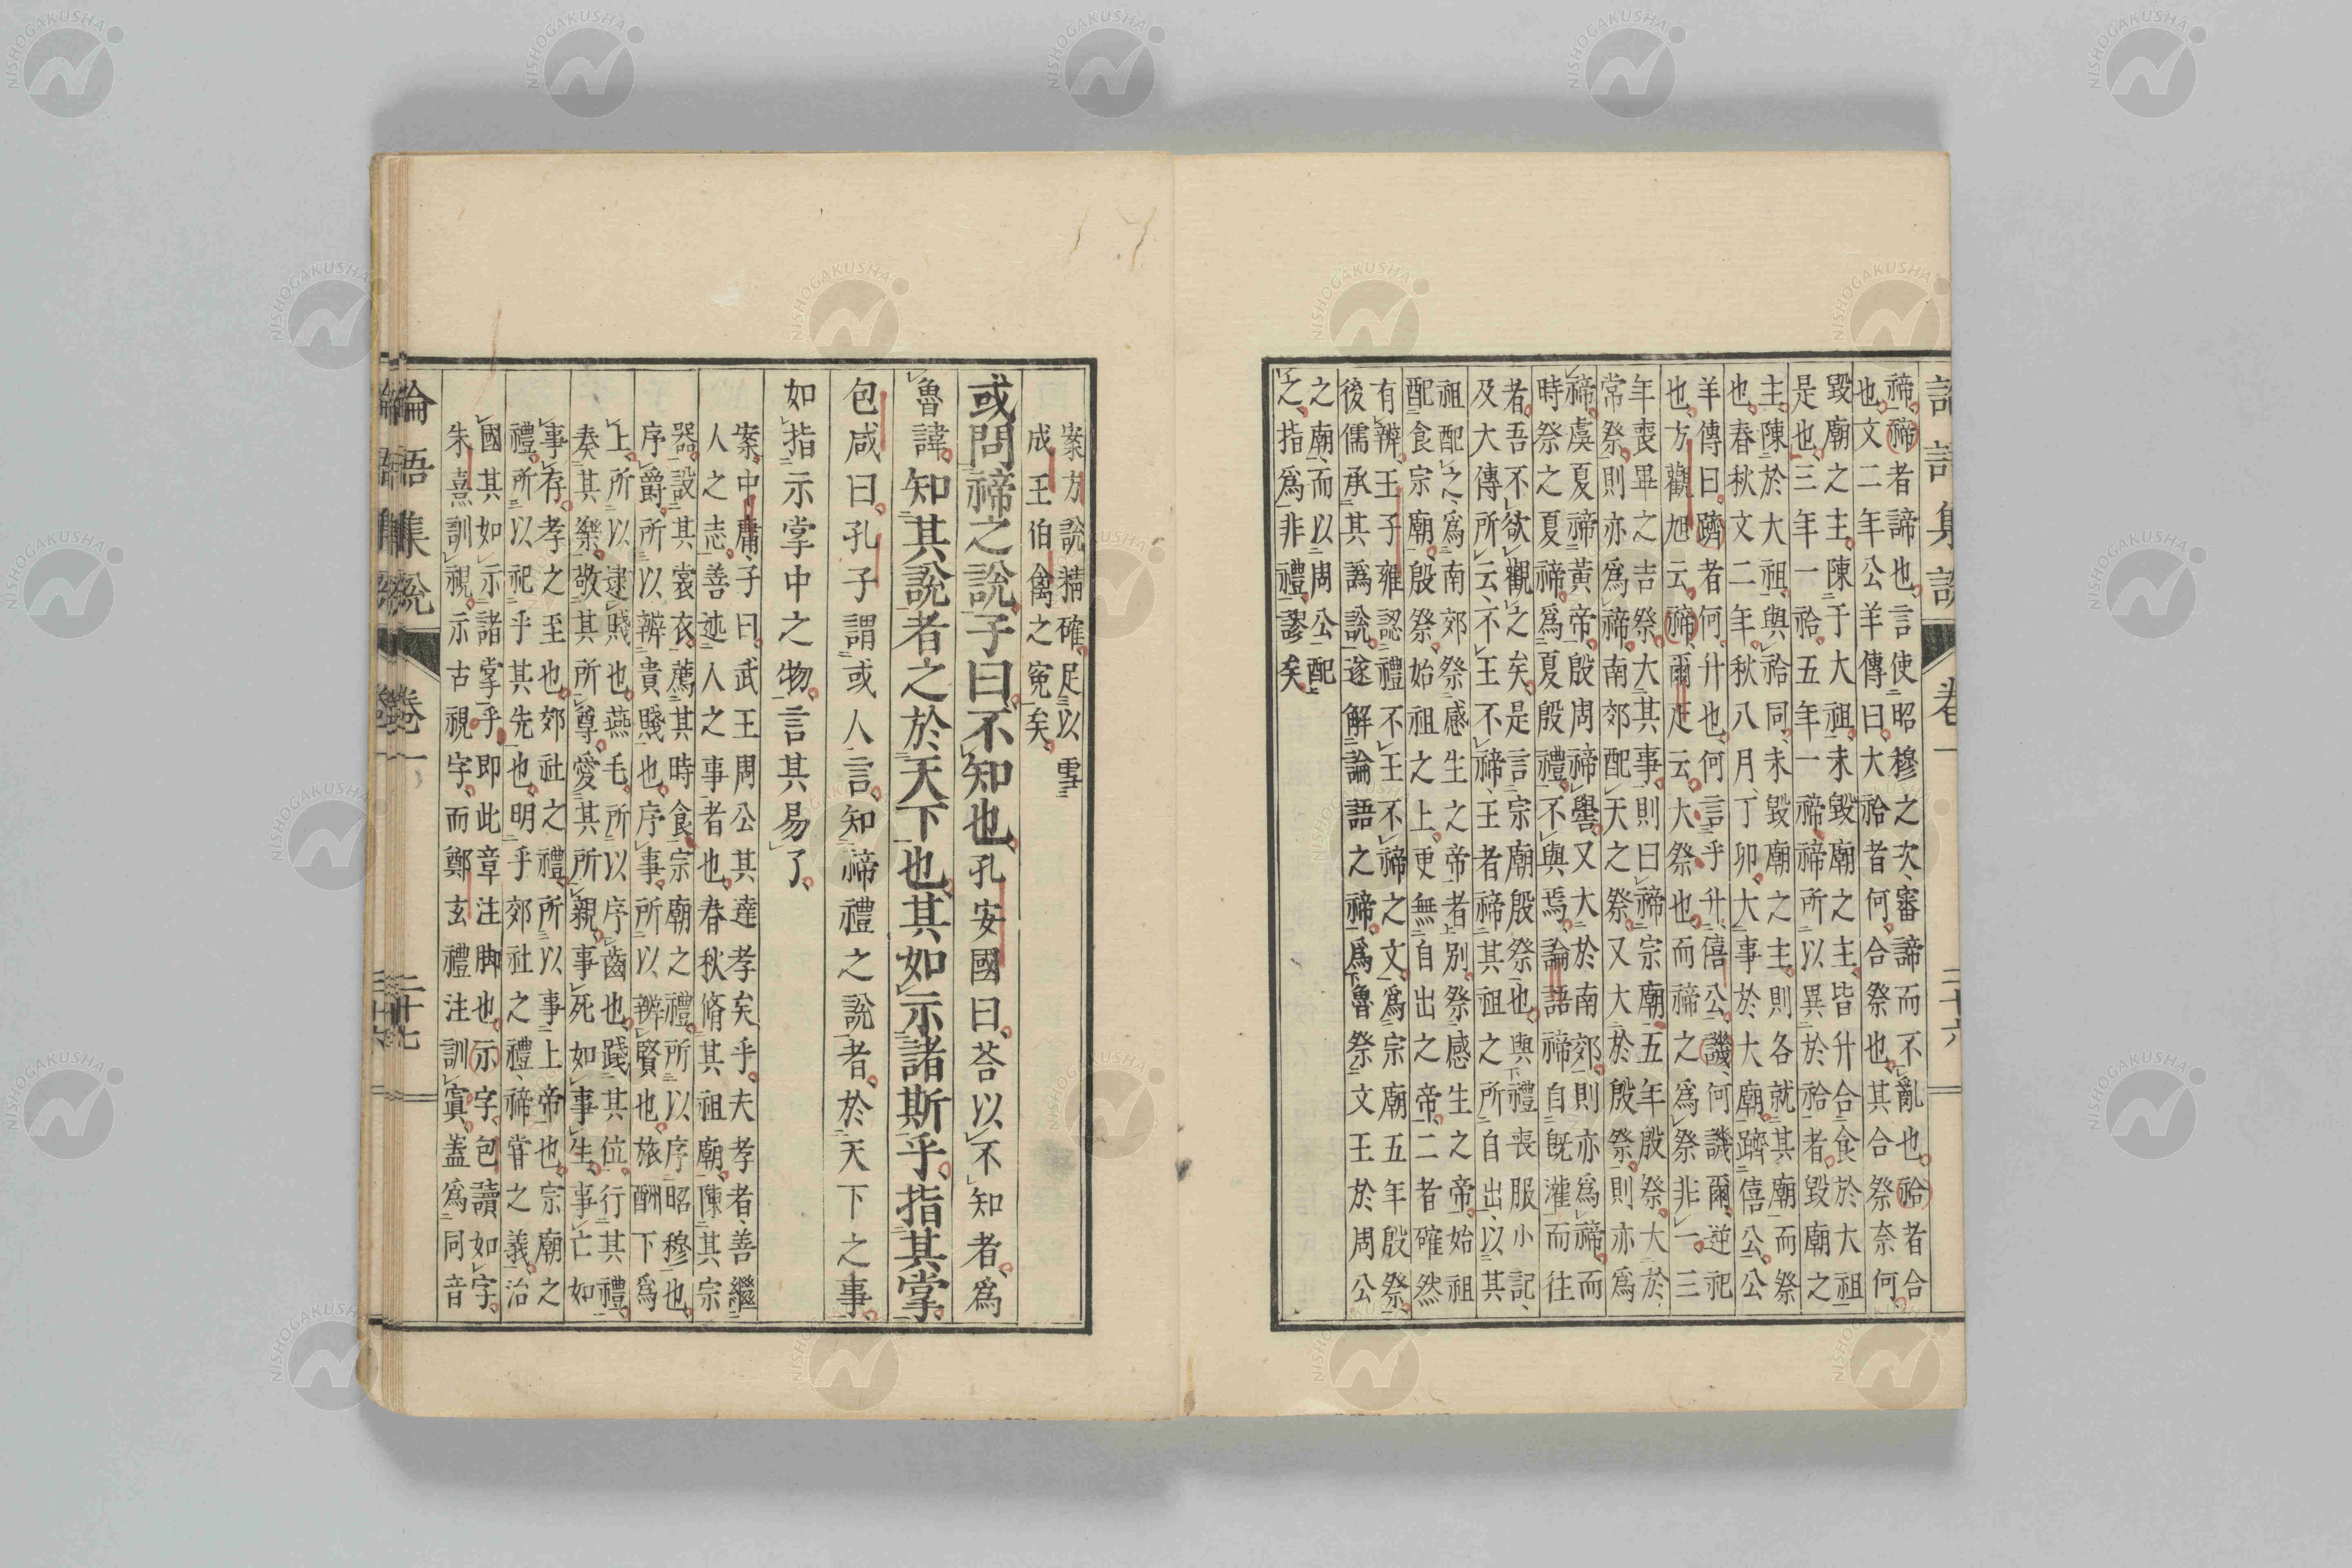 禘禘者諦也言使昭穆之次審諦而不亂也祫者合
也文二年公羊傳曰大祫者何合祭也其合祭奈何
毀廟之主陳于大祖未毀廟之主皆升合食於大祖
是也三年一祫五年一禘禘所以異於祫者毀廟之
主陳於大祖與祫同未毀廟之主則各就其廟而祭
也春秋文二年秋八月丁卯大事於大廟躋僖公公
羊傳曰躋者何升也何言乎升僖公譏何譏爾逆祀
也方觀旭云禘爾疋云大祭也而禘之爲祭非一三
年喪畢之吉祭大其事則曰禘宗廟五年殷祭大於
常祭則亦爲禘南郊配天之祭又大於殷祭則亦爲
禘虞夏禘黃帝殷周禘嚳又大於南郊則亦爲禘而
時祭之夏禘爲夏殷禮不與焉論語禘自既灌而往
者吾不欲觀之矣是言宗廟殷祭也與禮喪服小記
及大傳所云不王不禘王者禘其祖之所自出以其
祖配之爲南郊祭感生之帝者別祭感生之帝始祖
配食宗廟殷祭始祖之上更無自出之帝二者確然
有辨王子雍認禮不王不禘之文爲宗廟五年殷祭
後儒承其譌說遂解論語之禘爲魯祭文王於周公
之廟而以周公配
之指爲非禮謬矣
論語集說 卷一 二十六
案方說精確足以雪
成王伯禽之冤矣
或問禘之說子曰不知也孔安國曰荅以不知者爲
魯諱知其說者之於天下也其如示諸斯乎指其掌
包咸曰孔子謂或人言知禘禮之說者於天下之事
如指示掌中之物言其易了
案中庸子曰武王周公其達孝矣乎夫孝者善繼
人之志善述人之事者也春秋脩其祖廟陳其宗
器設其裳衣薦其時食宗廟之禮所以序昭穆也
序爵所以辨貴賤也序事所以辨賢也旅酬下爲
上所以逮賤也燕毛所以序齒也踐其位行其禮
奏其樂敬其所尊愛其所親事死如事生事亡如
事存孝之至也郊社之禮所以事上帝也宗廟之
禮所以祀乎其先也明乎郊社之禮禘甞之義治
國其如示諸掌乎即此章注脚也示字包讀如字
朱熹訓視示古視字而鄭玄禮注訓寘蓋爲同音
論語集說 卷一 二十七